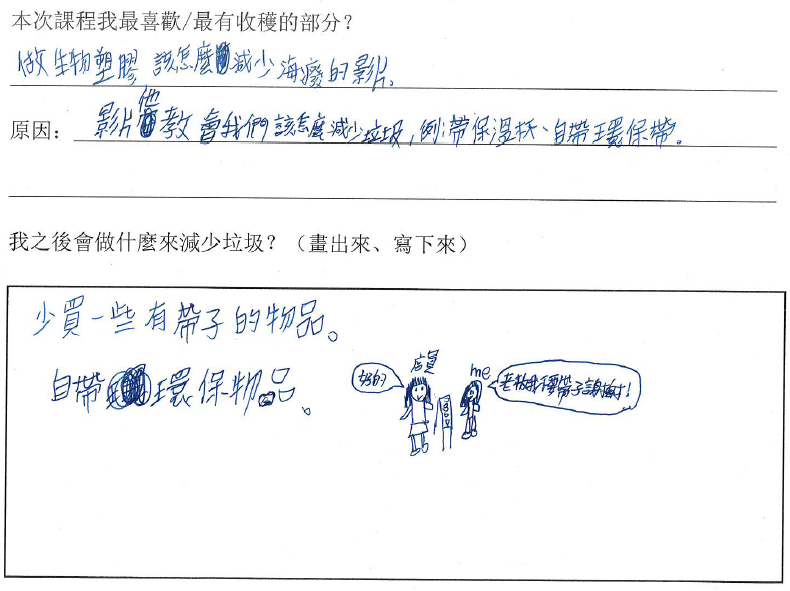 本次課程我最喜歡/最有收穫的部分？
做生物塑膠 該怎麼減少海廢的影片。
原因：影片他教會我們該怎麼減少垃圾，例：帶保溫杯、自帶環保帶。
我之後會做什麼來減少垃圾？（畫出來、寫下來）
少買一些有帶子的物品。
自帶環保物品。
店員
好的
me
老板我不要帶子謝謝！